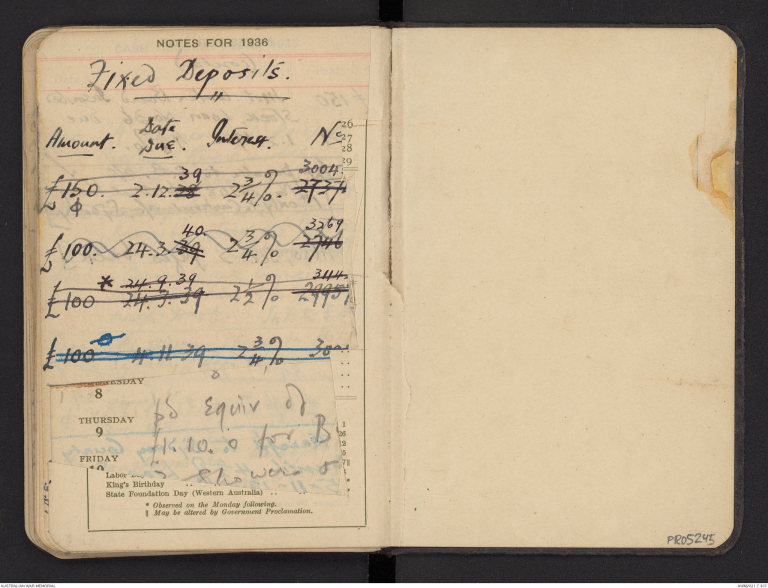 NOTES FOR 1936
Fixed Deposits.
"
Amount. Date Due. Interest. No
39 3004
£150. 2.12.38 2 3/4 %. 2737
40. 3269
£100. 24.3.39 2 3/4 % 2746
* 24.9.39 3114
£100 24.3.39 2 1/2 % 2995
£100 4.11.39 2 3/4 %
8
THURSDAY
9
pd Equiv of
FRIDAY
£1.10.0 for B
Labor
King's Birthday
State Foundation Day (Western Australia) ..
* Observed on the Monday following.
|| May be altered by Government Proclamation.
26
27
28
29
PR05245
AUSTRALIAN WAR MEMORIAL